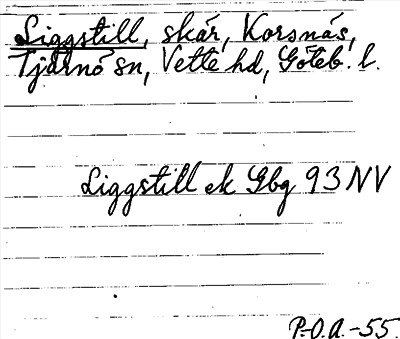 Liggstill, skär, Korsnäs,
Tjärnö sn, Vette hd, Göteb. l.
Liggstill ek Gbg 93 NV
P.-O.A.-55.